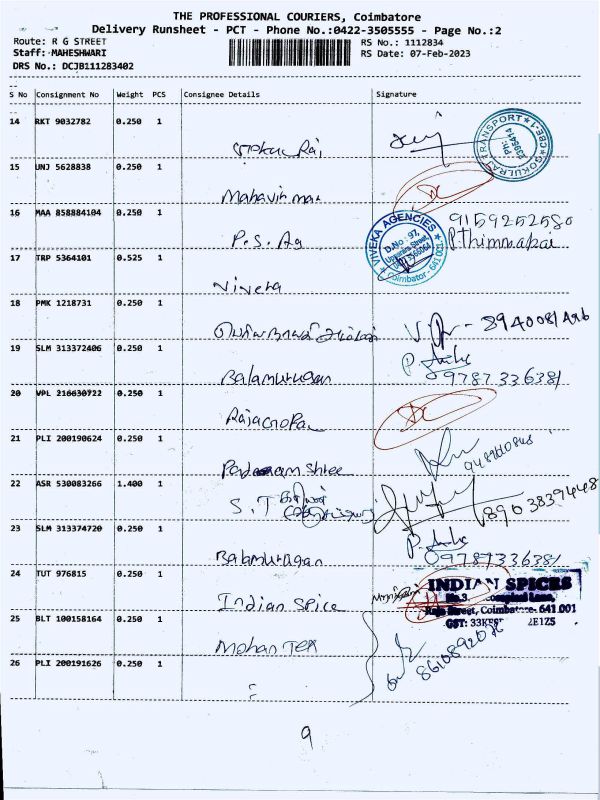 THE PROFESSIONAL COURIERS, Coimbatore
Delivery Runsheet - PCT - Phone No.:0422-3505555 - Page No.:2
Route: R G STREET
RS No.: 1112834
Staff: MAHESHWARI
RS Date: 07-Feb-2023
DRS No.: DCJB111283402
S No Consignment No Weight PCS Consignee Details Signature
14 RKT 9032782 0.250 1
GOKULRAJ TRANSPORT CBE-1
Ph: 2395414
15 UNJ 5628838 0.250 1
Mahavir mar
16 MAA 858884104 0.250 1
P.S. Ag
9159252580
P.Thimmapar
VIVEKA AGENCIES
D.No: 97,
Coimbator- 641 001
17 TRP 5364101 0.525 1
Viveka
18 PMK 1218731 0.250 1
19 SLM 313372406 0.250 1
Balamurugan
09787336381
20 VPL 216630722 0.250 1
Rajagopa
21 PLI 200190624 0.250 1
Shree
22 ASR 530083266 1.400 1
S.T
8903839448
23 SLM 313374720 0.250 1
Balamurugan
09787336381
24 TUT 976815 0.250 1
Indian Spice
INDIAN SPICES
No.3,
Street, Coimbatore- 641 001
GST: 33K
2E1Z5
25 BLT 100158164 0.250 1
Mohan Tex
26 PLI 200191626 0.250 1
9